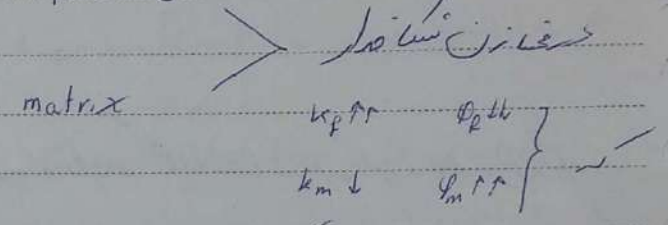 در مخازن شکافدار
matrix k_f ↑↑ φ_f ↓↓
k_m ↓ φ_m ↑↑